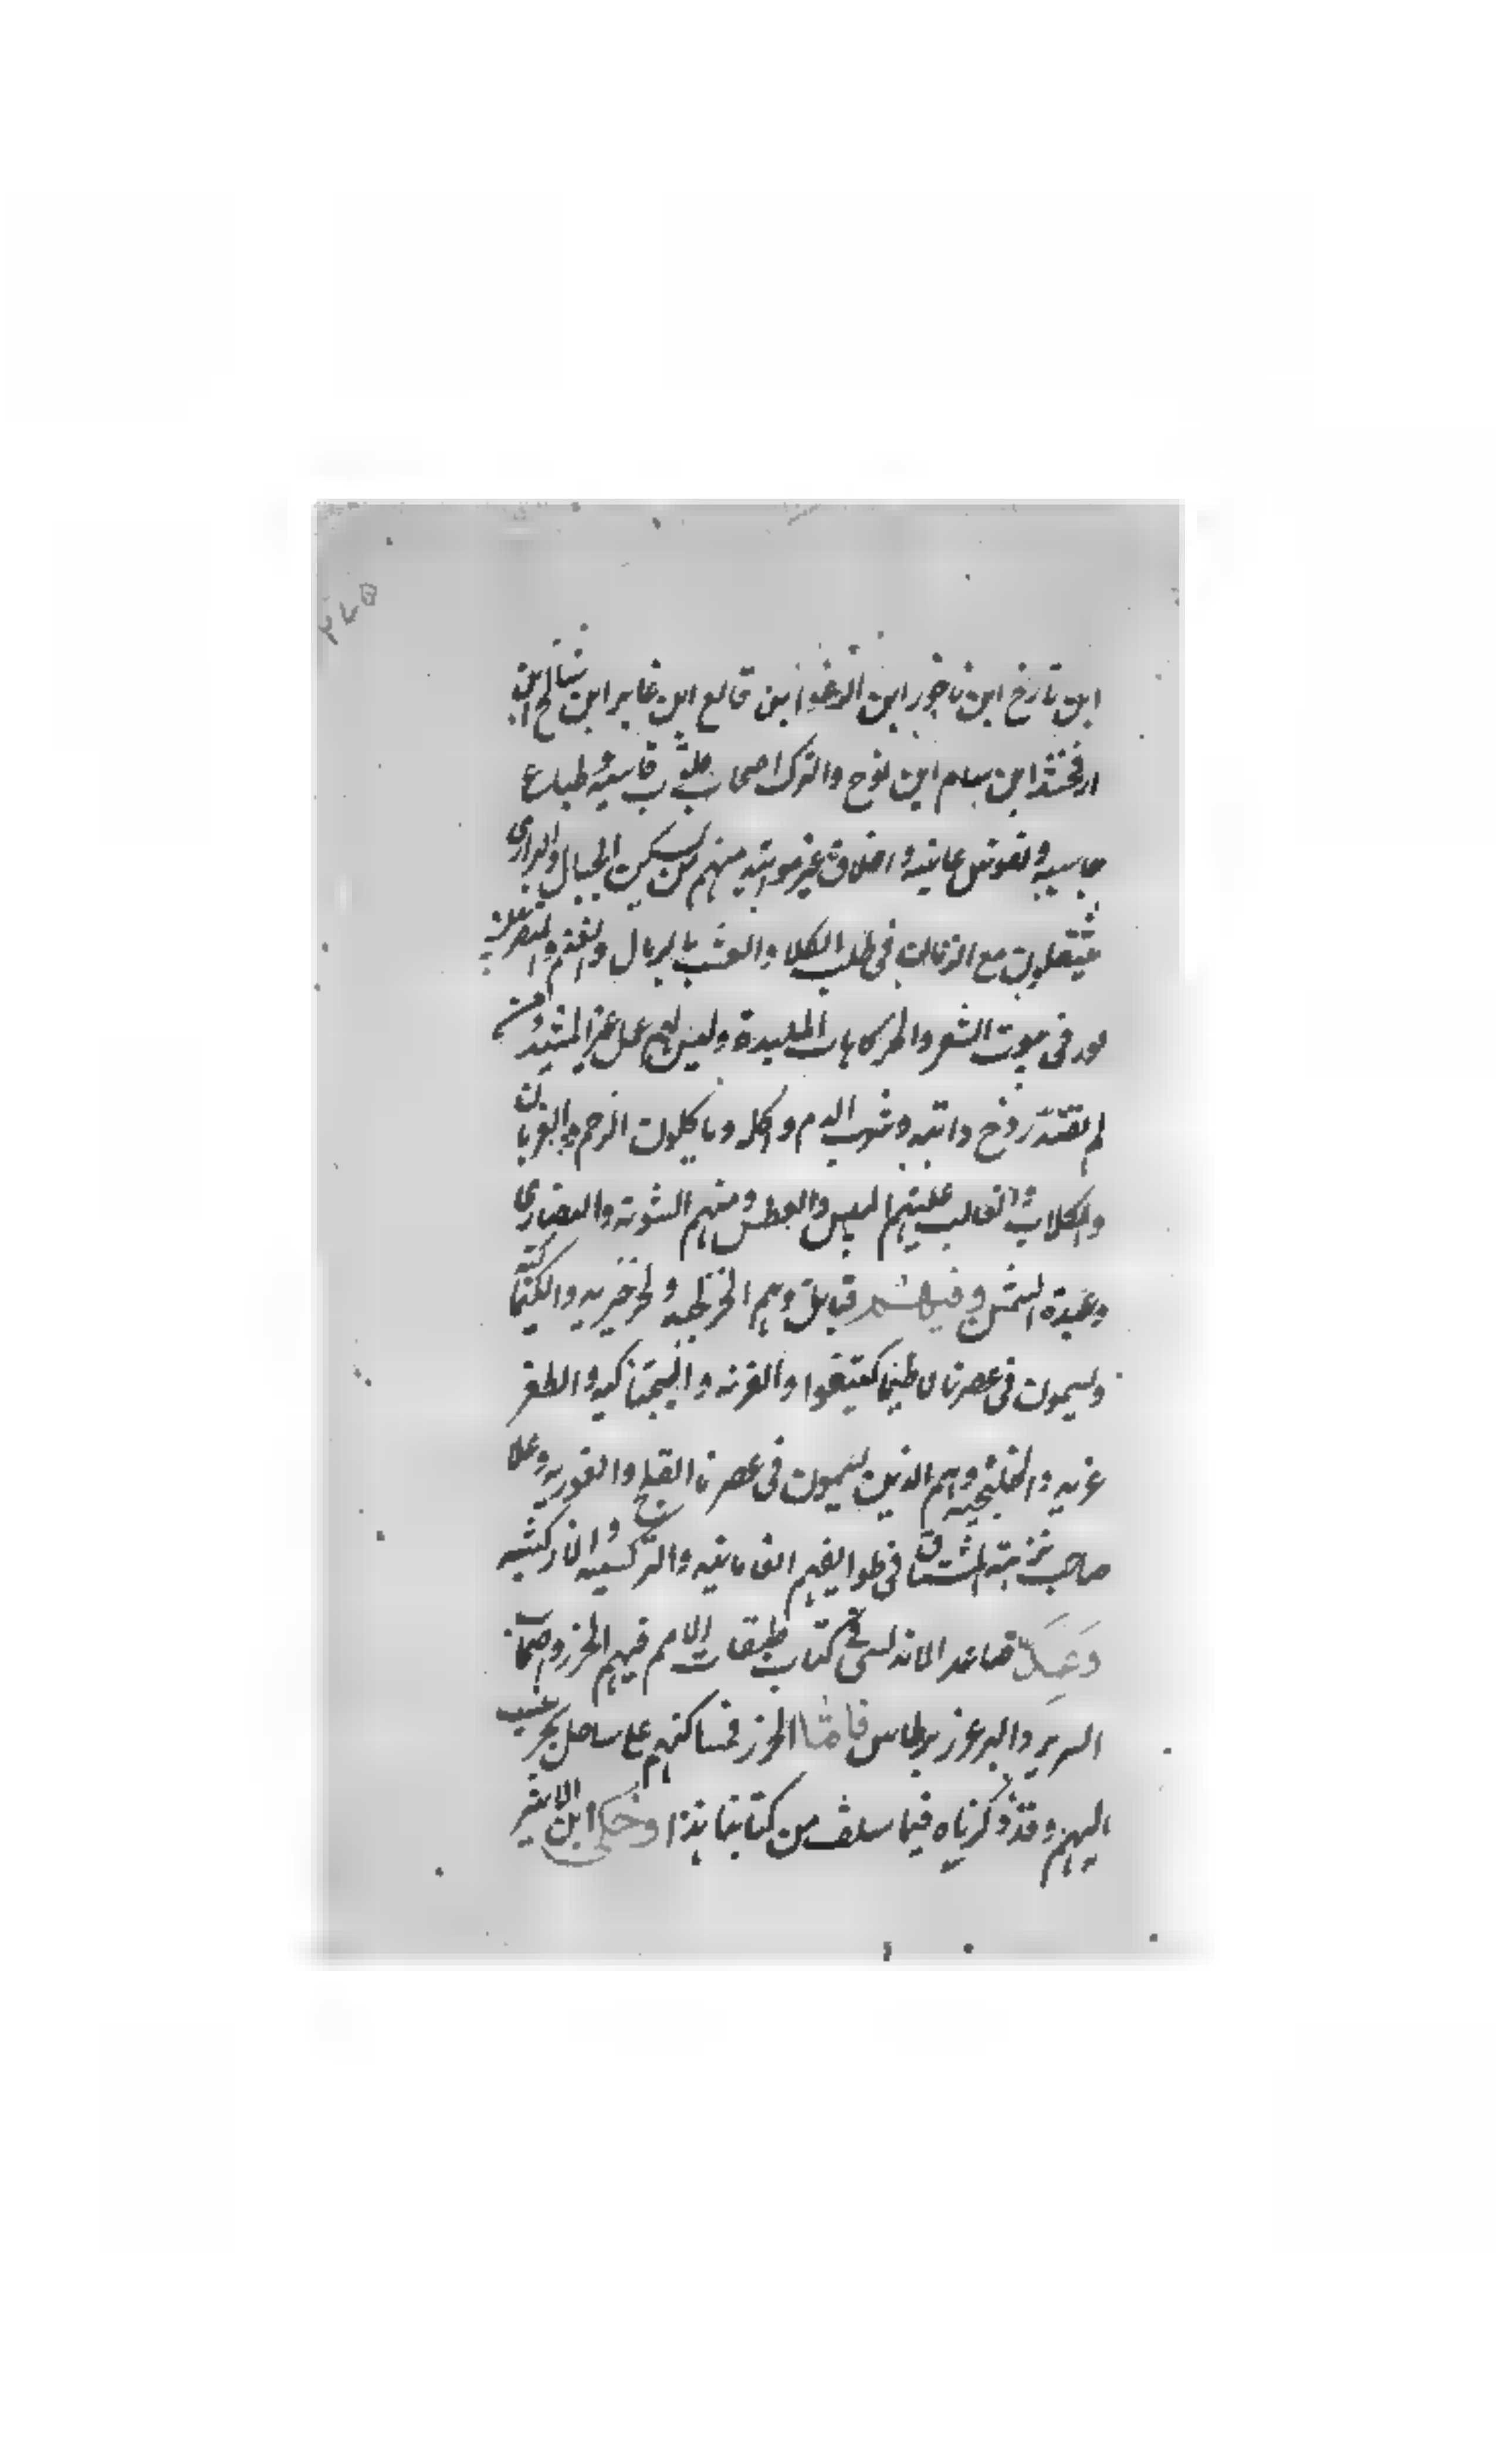 ابن تارخ ابن ناخور ابن ارغو ابن فالع ابن عابر ابن شالح ابن
ارفخشذ ابن سام ابن نوح والترك اصحاب قلوب قاسية وطباع
جاسيه ونفوس عاتيه واخلاق غير مواتيه منهم من يسكن الجبال والبرارى
ينتقلون مع الزمان فى طلب الكلا والعشب بالرجال والغنم
فى بيوت الشعر والخركاهات الملبدة وليس لهم عمل غير الصيد ومن
لم يقتدر ذبح دابته وشرب الدم واكله وياكلون الرخم والغربان
والكلاب والغالب عليهم اليبس والعطش ومنهم الثنويه والنصارى
وعبدة الشمس وفيهم قبايل وهم الخزلجيه والخرخيريه والكيماكيه
ويسمون فى عصرنا والغزيه والبجناكيه والطغز
غزيه والخلجيه وهم الذين يسمون فى عصرنا القلج والغوريه وعد
صاحب نزهة المشتاق فى طوايفهم والتركسيه والاركشيه
وعد صاعد الاندلسى فى كتاب طبقات الامم فيهم الخزر
السرير والبرغز برطاس فاما الخزر فمساكنهم على ساحل بحر ينسب
اليهم وقد ذكرناه فيما سلف من كتابنا هذا وحكى ابن الاثير